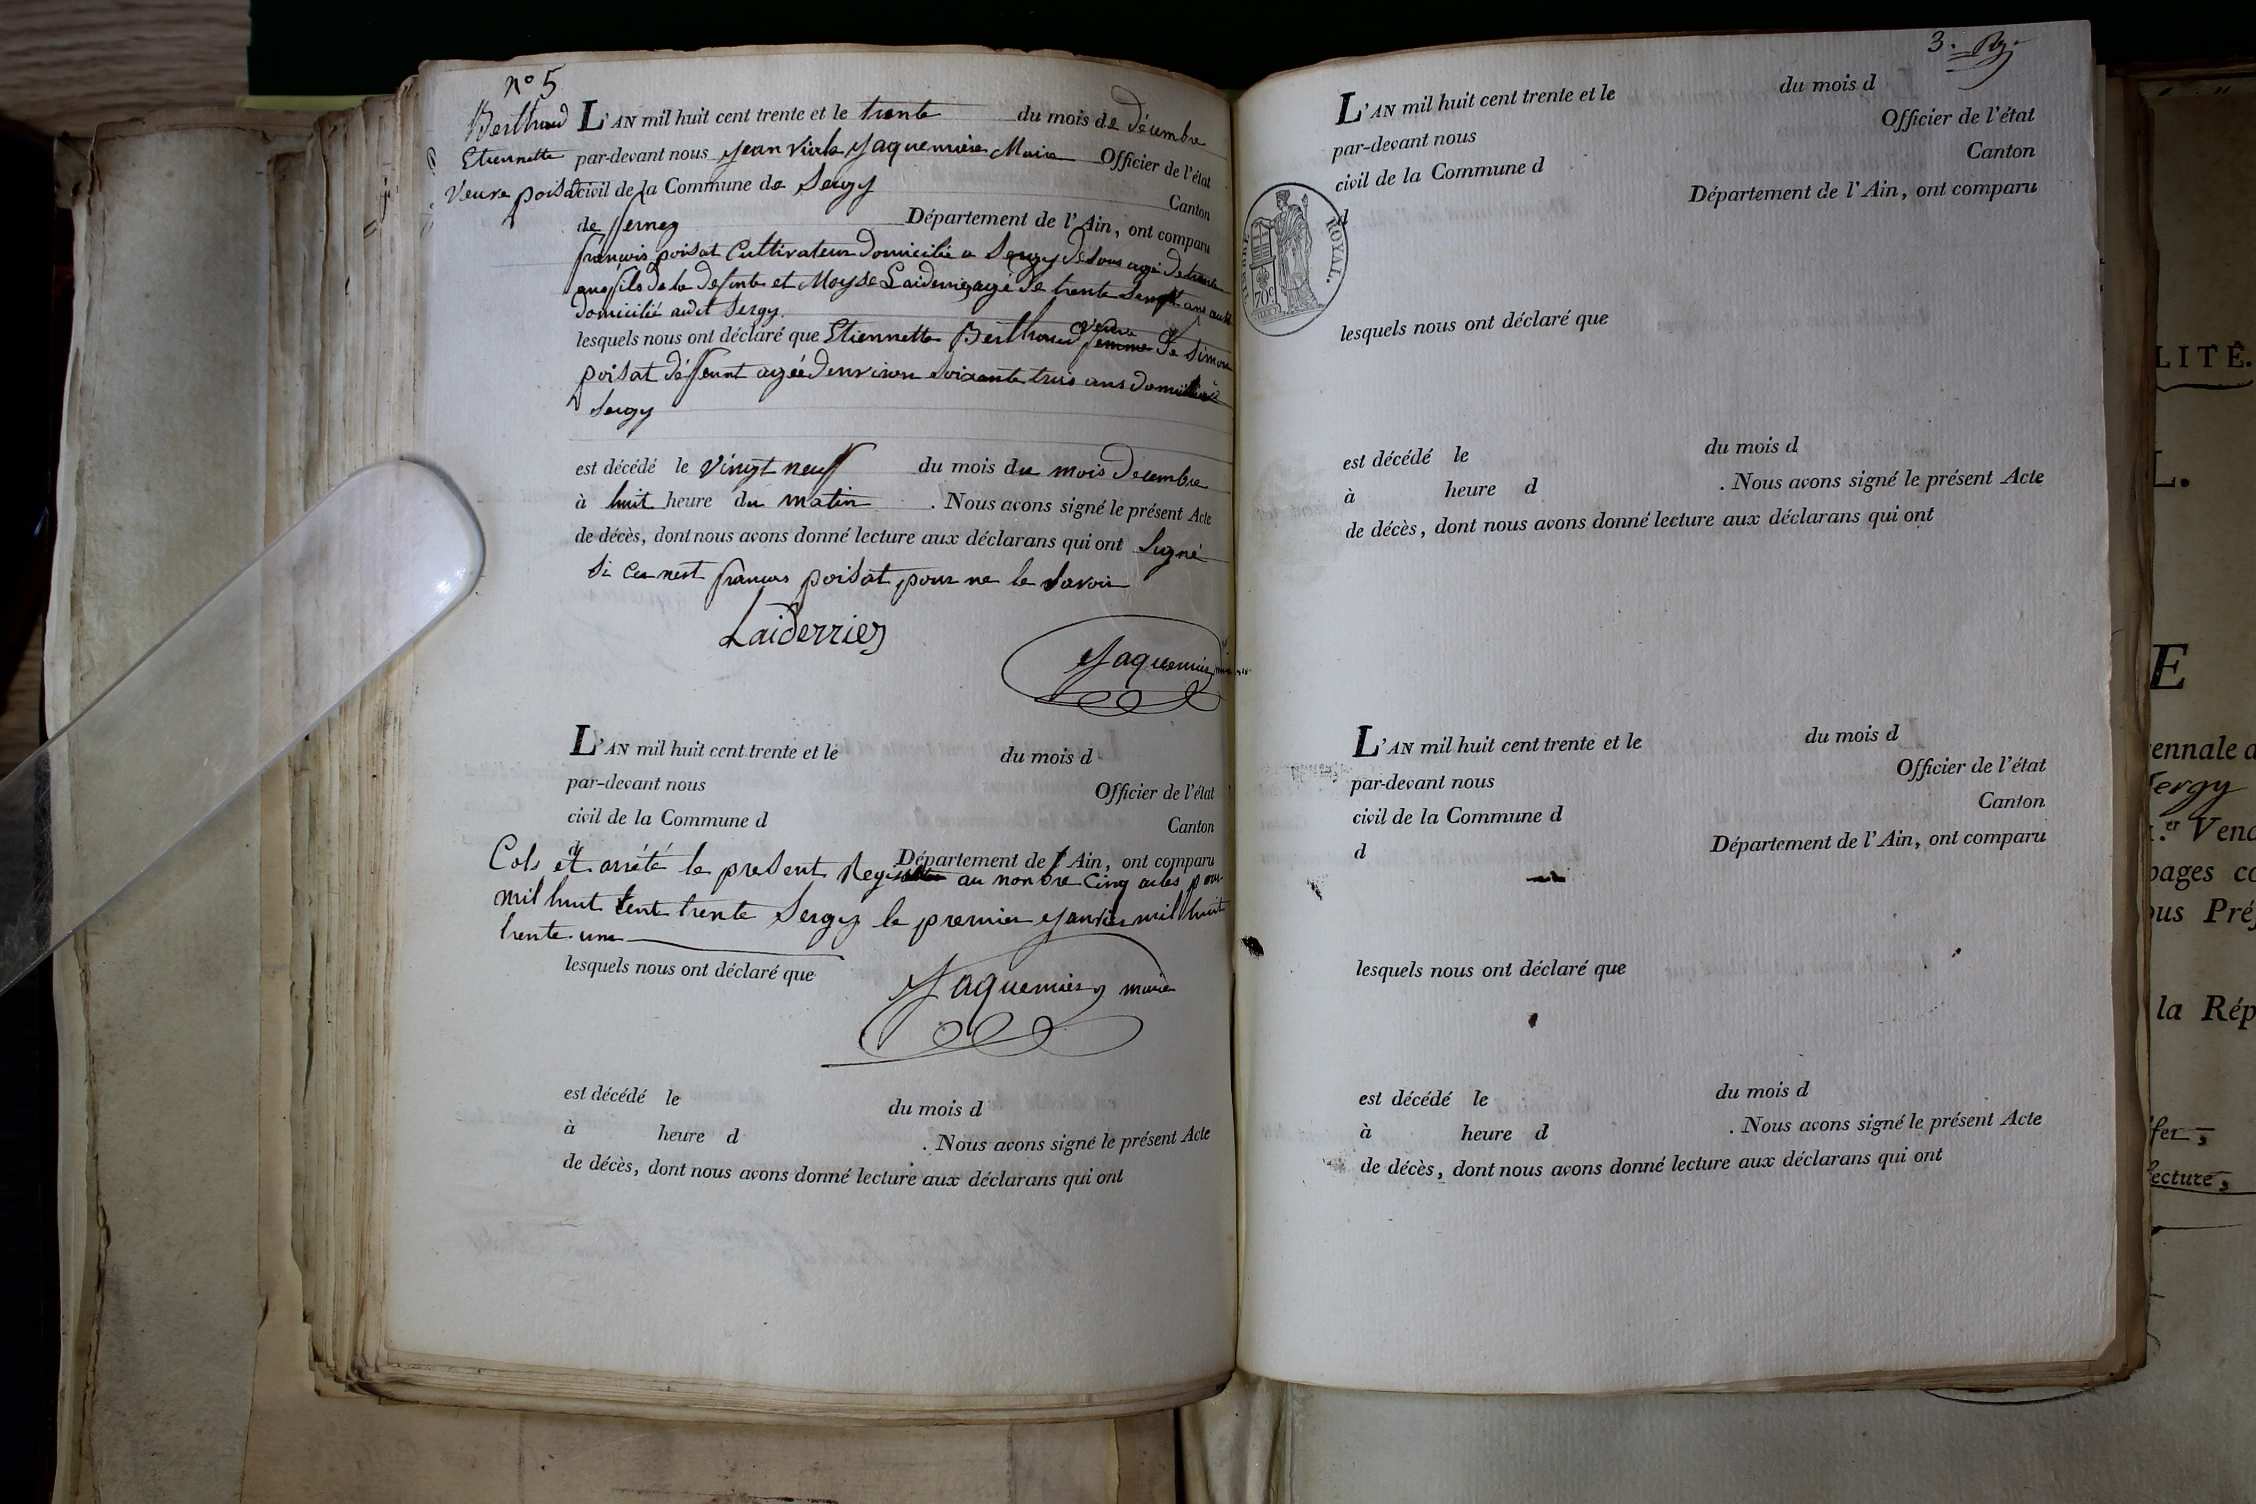 n° 5
Berthoud
Etiennette
Veuve poisat
L'AN mil huit cent trente et le trente du mois de décembre
par-devant nous Jean Jaquemier Maire Officier de l'état
civil de la Commune de Sergy Canton
de ferney Département de l'Ain, ont comparu
françois poisat Cultivateur domicilié a Sergy agé de trente
ans fils de la defunte et Moyse Laiderrier agé de trente Sempt ans aussi
domicilié audit Sergy.
lesquels nous ont déclaré que Etiennette Berthoud veuve femme de Simon
poisat déffeunt agéé denviron soixante trois ans domicilié a
Sergy
est décédé le vingt neuff du mois du mois Decembre
à huit heure du matin . Nous avons signé le présent Acte
de décès, dont nous avons donné lecture aux déclarans qui ont Signé
Si ce nest françois poisat pour ne le savoir
Laiderrier
Jaquemier maire
L'AN mil huit cent trente et le du mois d
par-devant nous Officier de l'état
civil de la Commune d Canton
d Département de l'Ain, ont comparu
Clos et arrété le present Registre au nonbre Cinq actes pour
mil huit Cent trente Sergy le premier Janvier mil huit
trente une
lesquels nous ont déclaré que
Jaquemier maire
est décédé le du mois d
à heure d . Nous avons signé le présent Acte
de décès, dont nous avons donné lecture aux déclarans qui ont
3.
L'AN mil huit cent trente et le du mois d
par-devant nous Officier de l'état
civil de la Commune d Canton
d Département de l'Ain, ont comparu
TIMBRE ROYAL.
70c
lesquels nous ont déclaré que
est décédé le du mois d
à heure d . Nous avons signé le présent Acte
de décès, dont nous avons donné lecture aux déclarans qui ont
L'AN mil huit cent trente et le du mois d
par-devant nous Officier de l'état
civil de la Commune d Canton
d Département de l'Ain, ont comparu
lesquels nous ont déclaré que
est décédé le du mois d
à heure d . Nous avons signé le présent Acte
de décès, dont nous avons donné lecture aux déclarans qui ont
LITÉ.
L.
E
ennale d
Sergy
er Vend
pages co
ous Préf
la Rép
fer,
ecture,